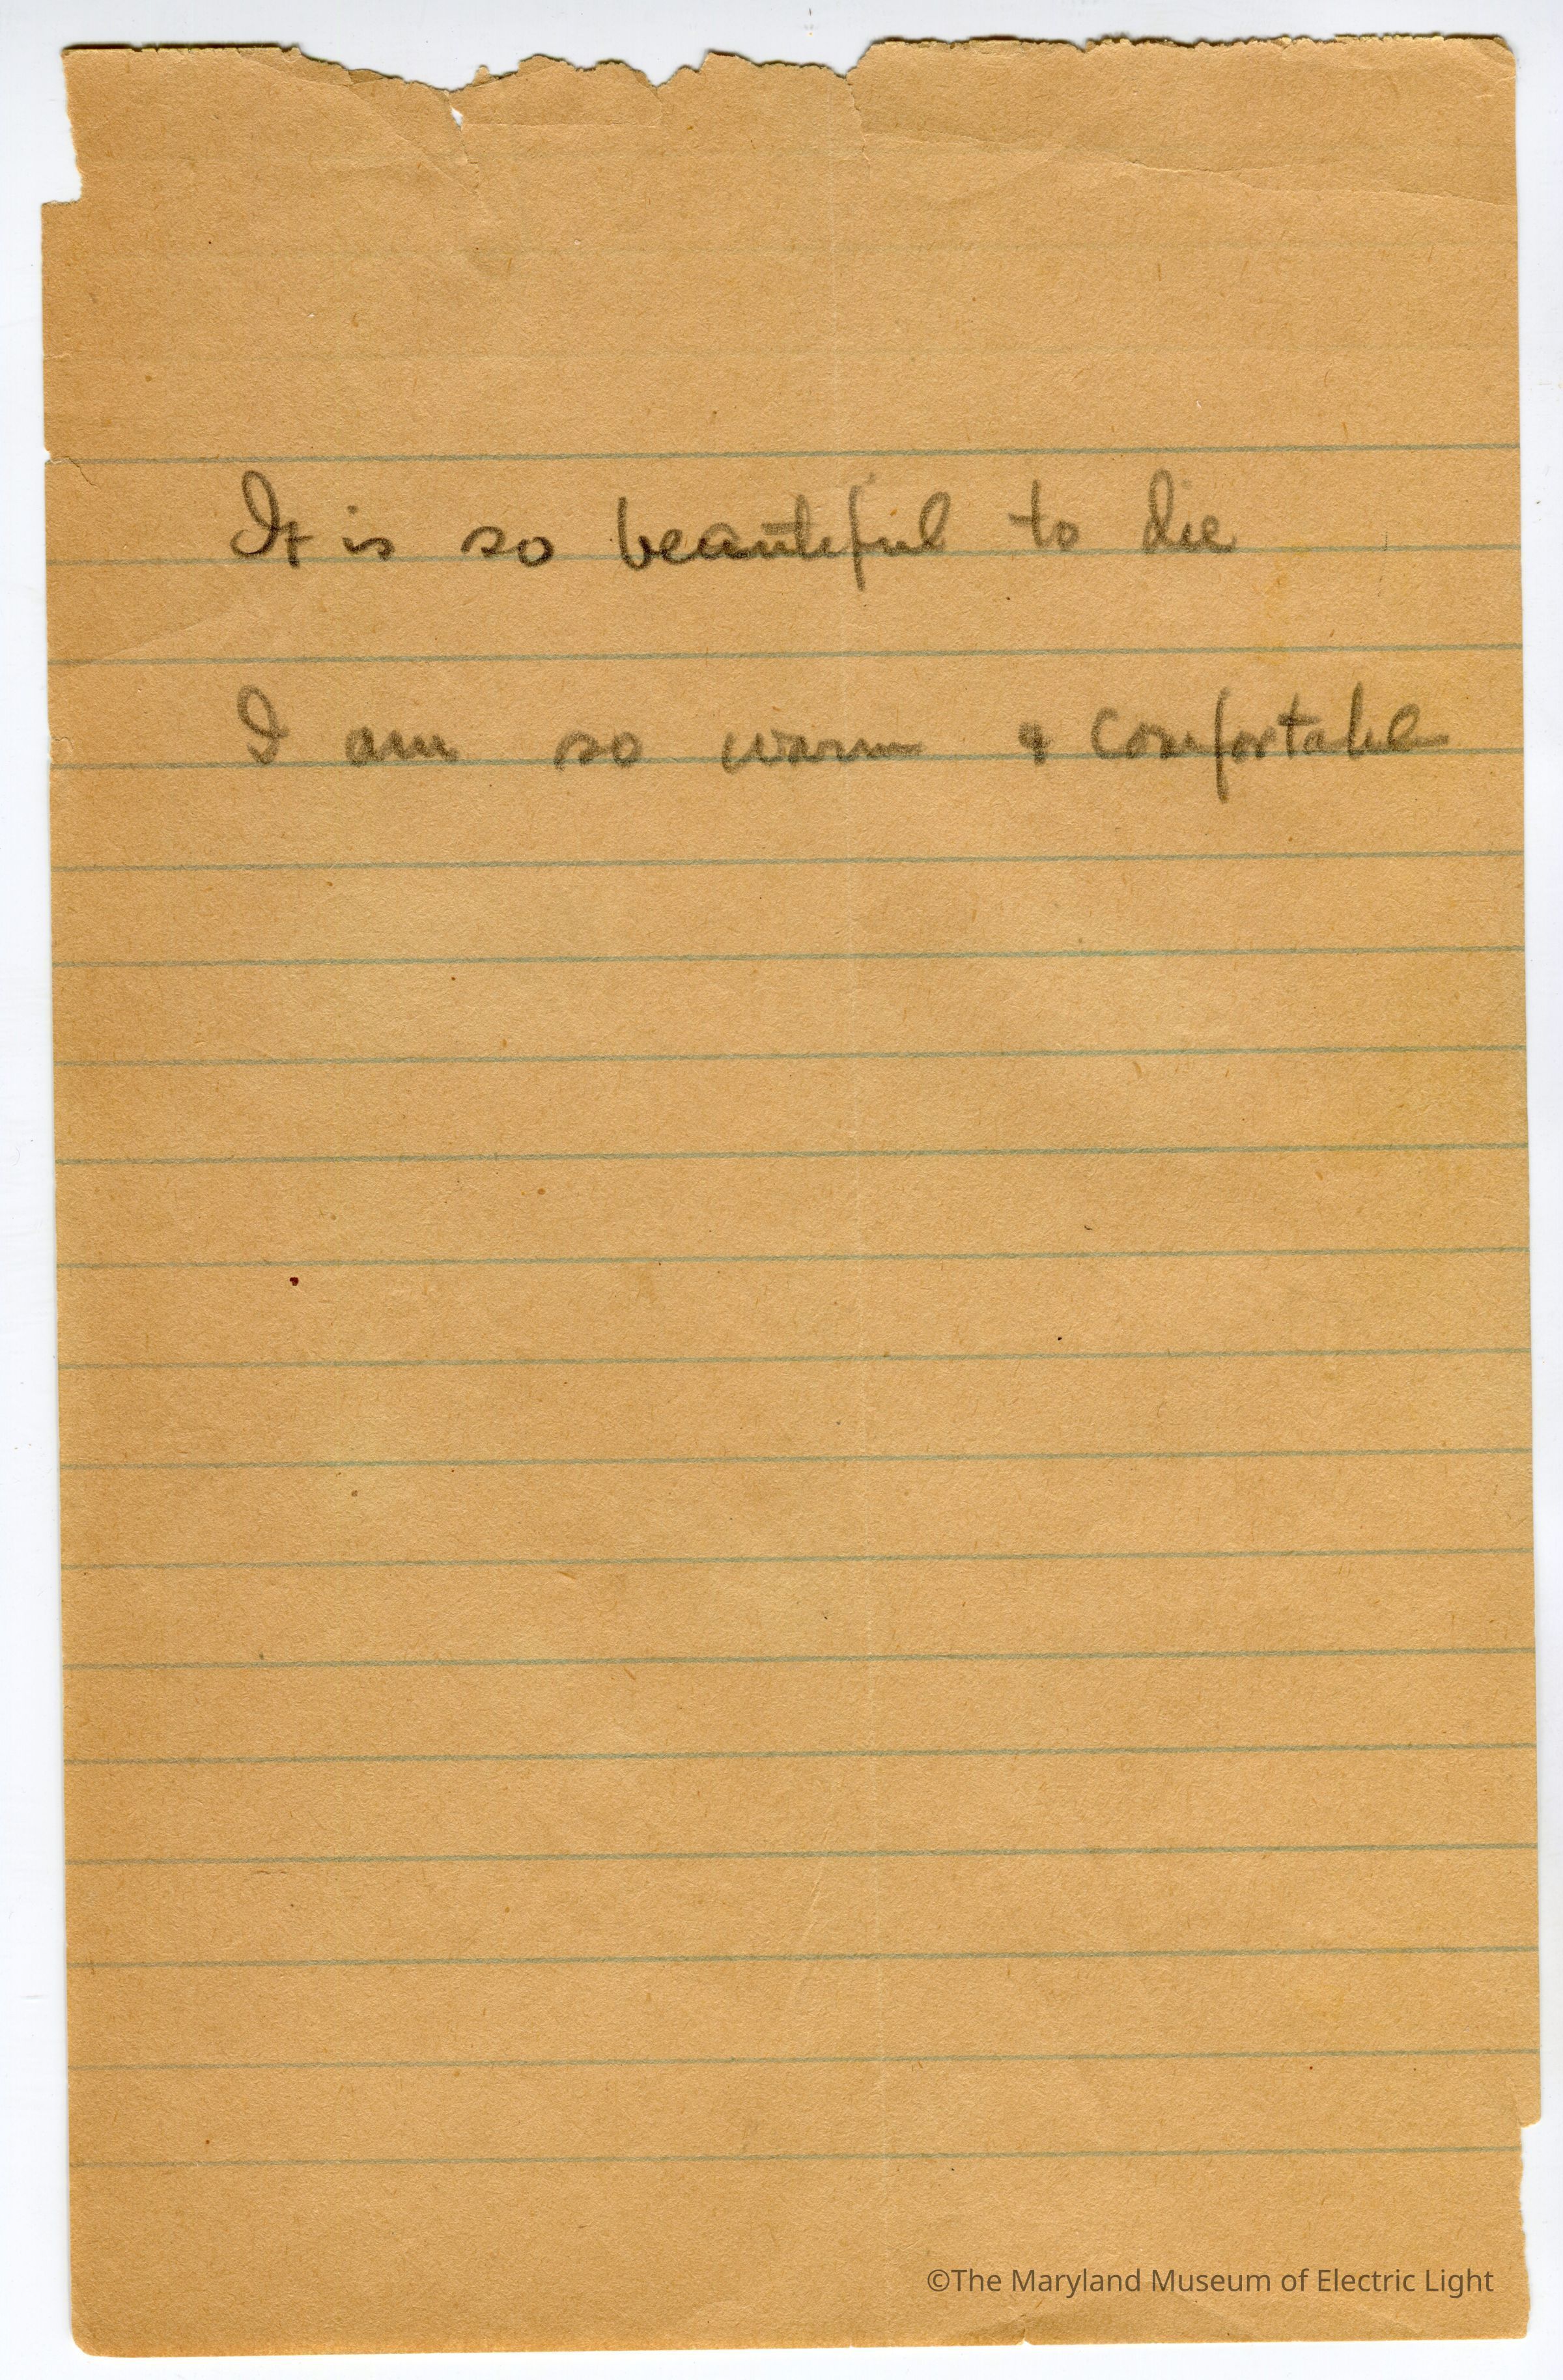 It is so beautiful to die
I am so warm & comfortable
©The Maryland Museum of Electric Light